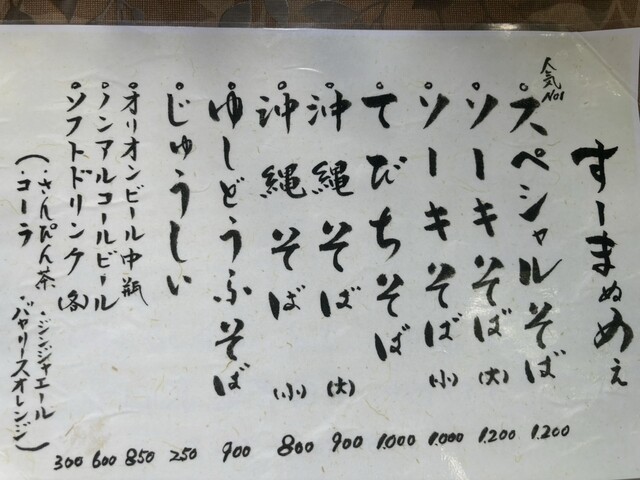 すーまぬめぇ
人気No1
°スペシャルそば 1.200
°ソーキそば(大) 1.200
°ソーキそば(小) 1.000
°てびちそば 1.000
°沖縄そば(大) 900
°沖縄そば(小) 800
°ゆしどうふそば 900
°じゅうしい 250
°オリオンビール中瓶 850
°ノンアルコールビール 600
°ソフトドリンク(各) 300
(・さんぴん茶 ・ジンジャエール
・コーラ ・バヤリースオレンジ)